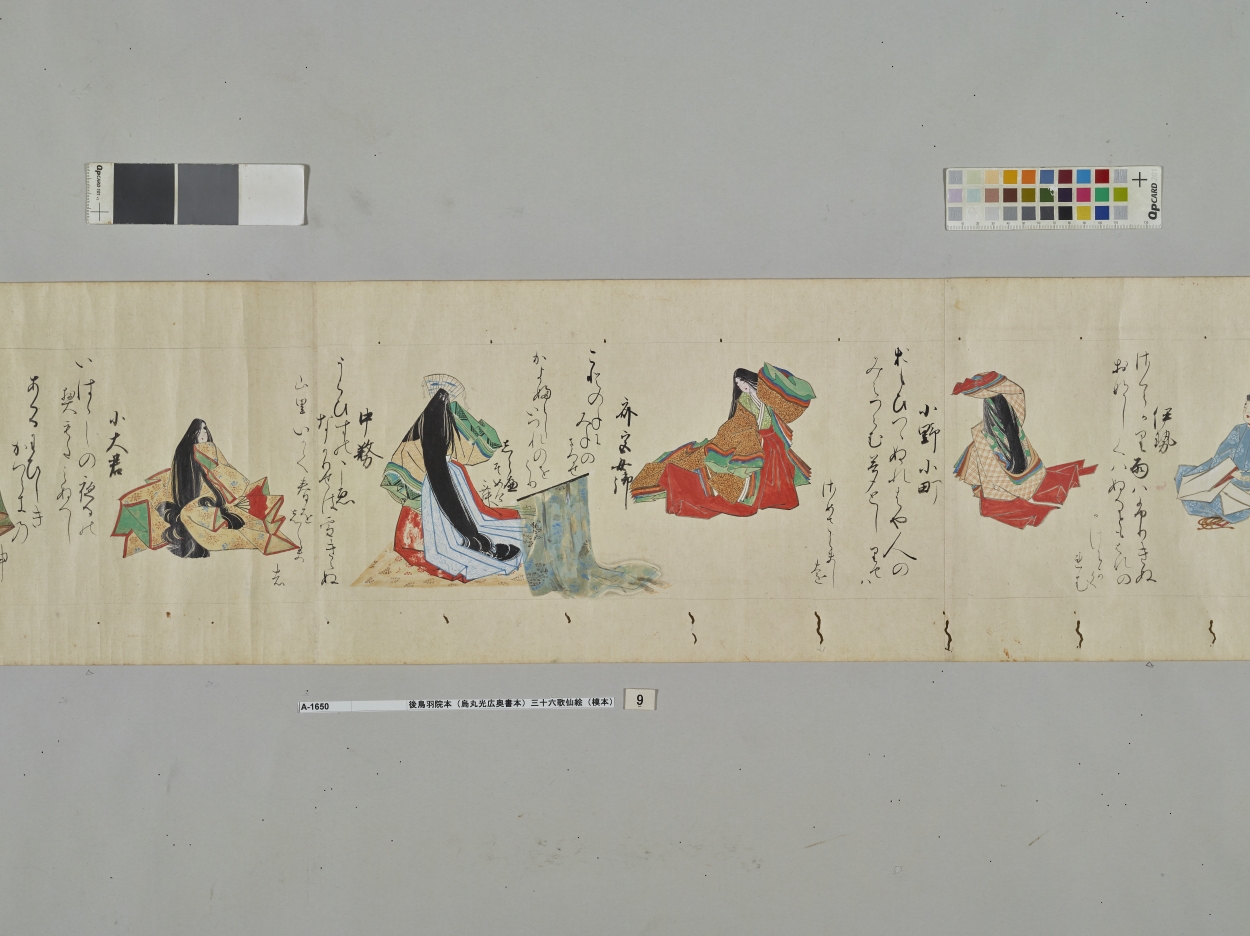 伊勢
小野小町
おもひつゝぬれはや人の
みえつらむ夢としりせは
さめさらまし
を
斎宮女御
ことのねにみねの
まつかせ
かよふらしいつれのを
より
しらへ
そめけむ
中務
うくひすのこゑ
なかりせは雪きえぬ
山里いかて春をしらまし
小大君
いははしの夜るの
契もたえぬへし
あくるわひしき
かつらきの
神
A-1650 後鳥羽院本（烏丸光広奥書本）三十六歌仙絵（模本）
9
QPCARD 101
QPCARD 201